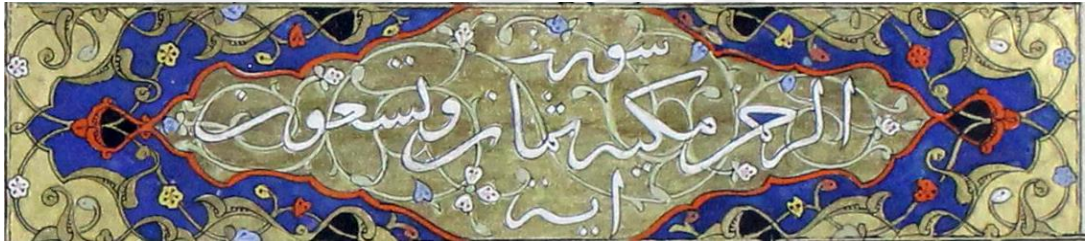 سورة
الرحمن مكية ثمان وتسعون
اية